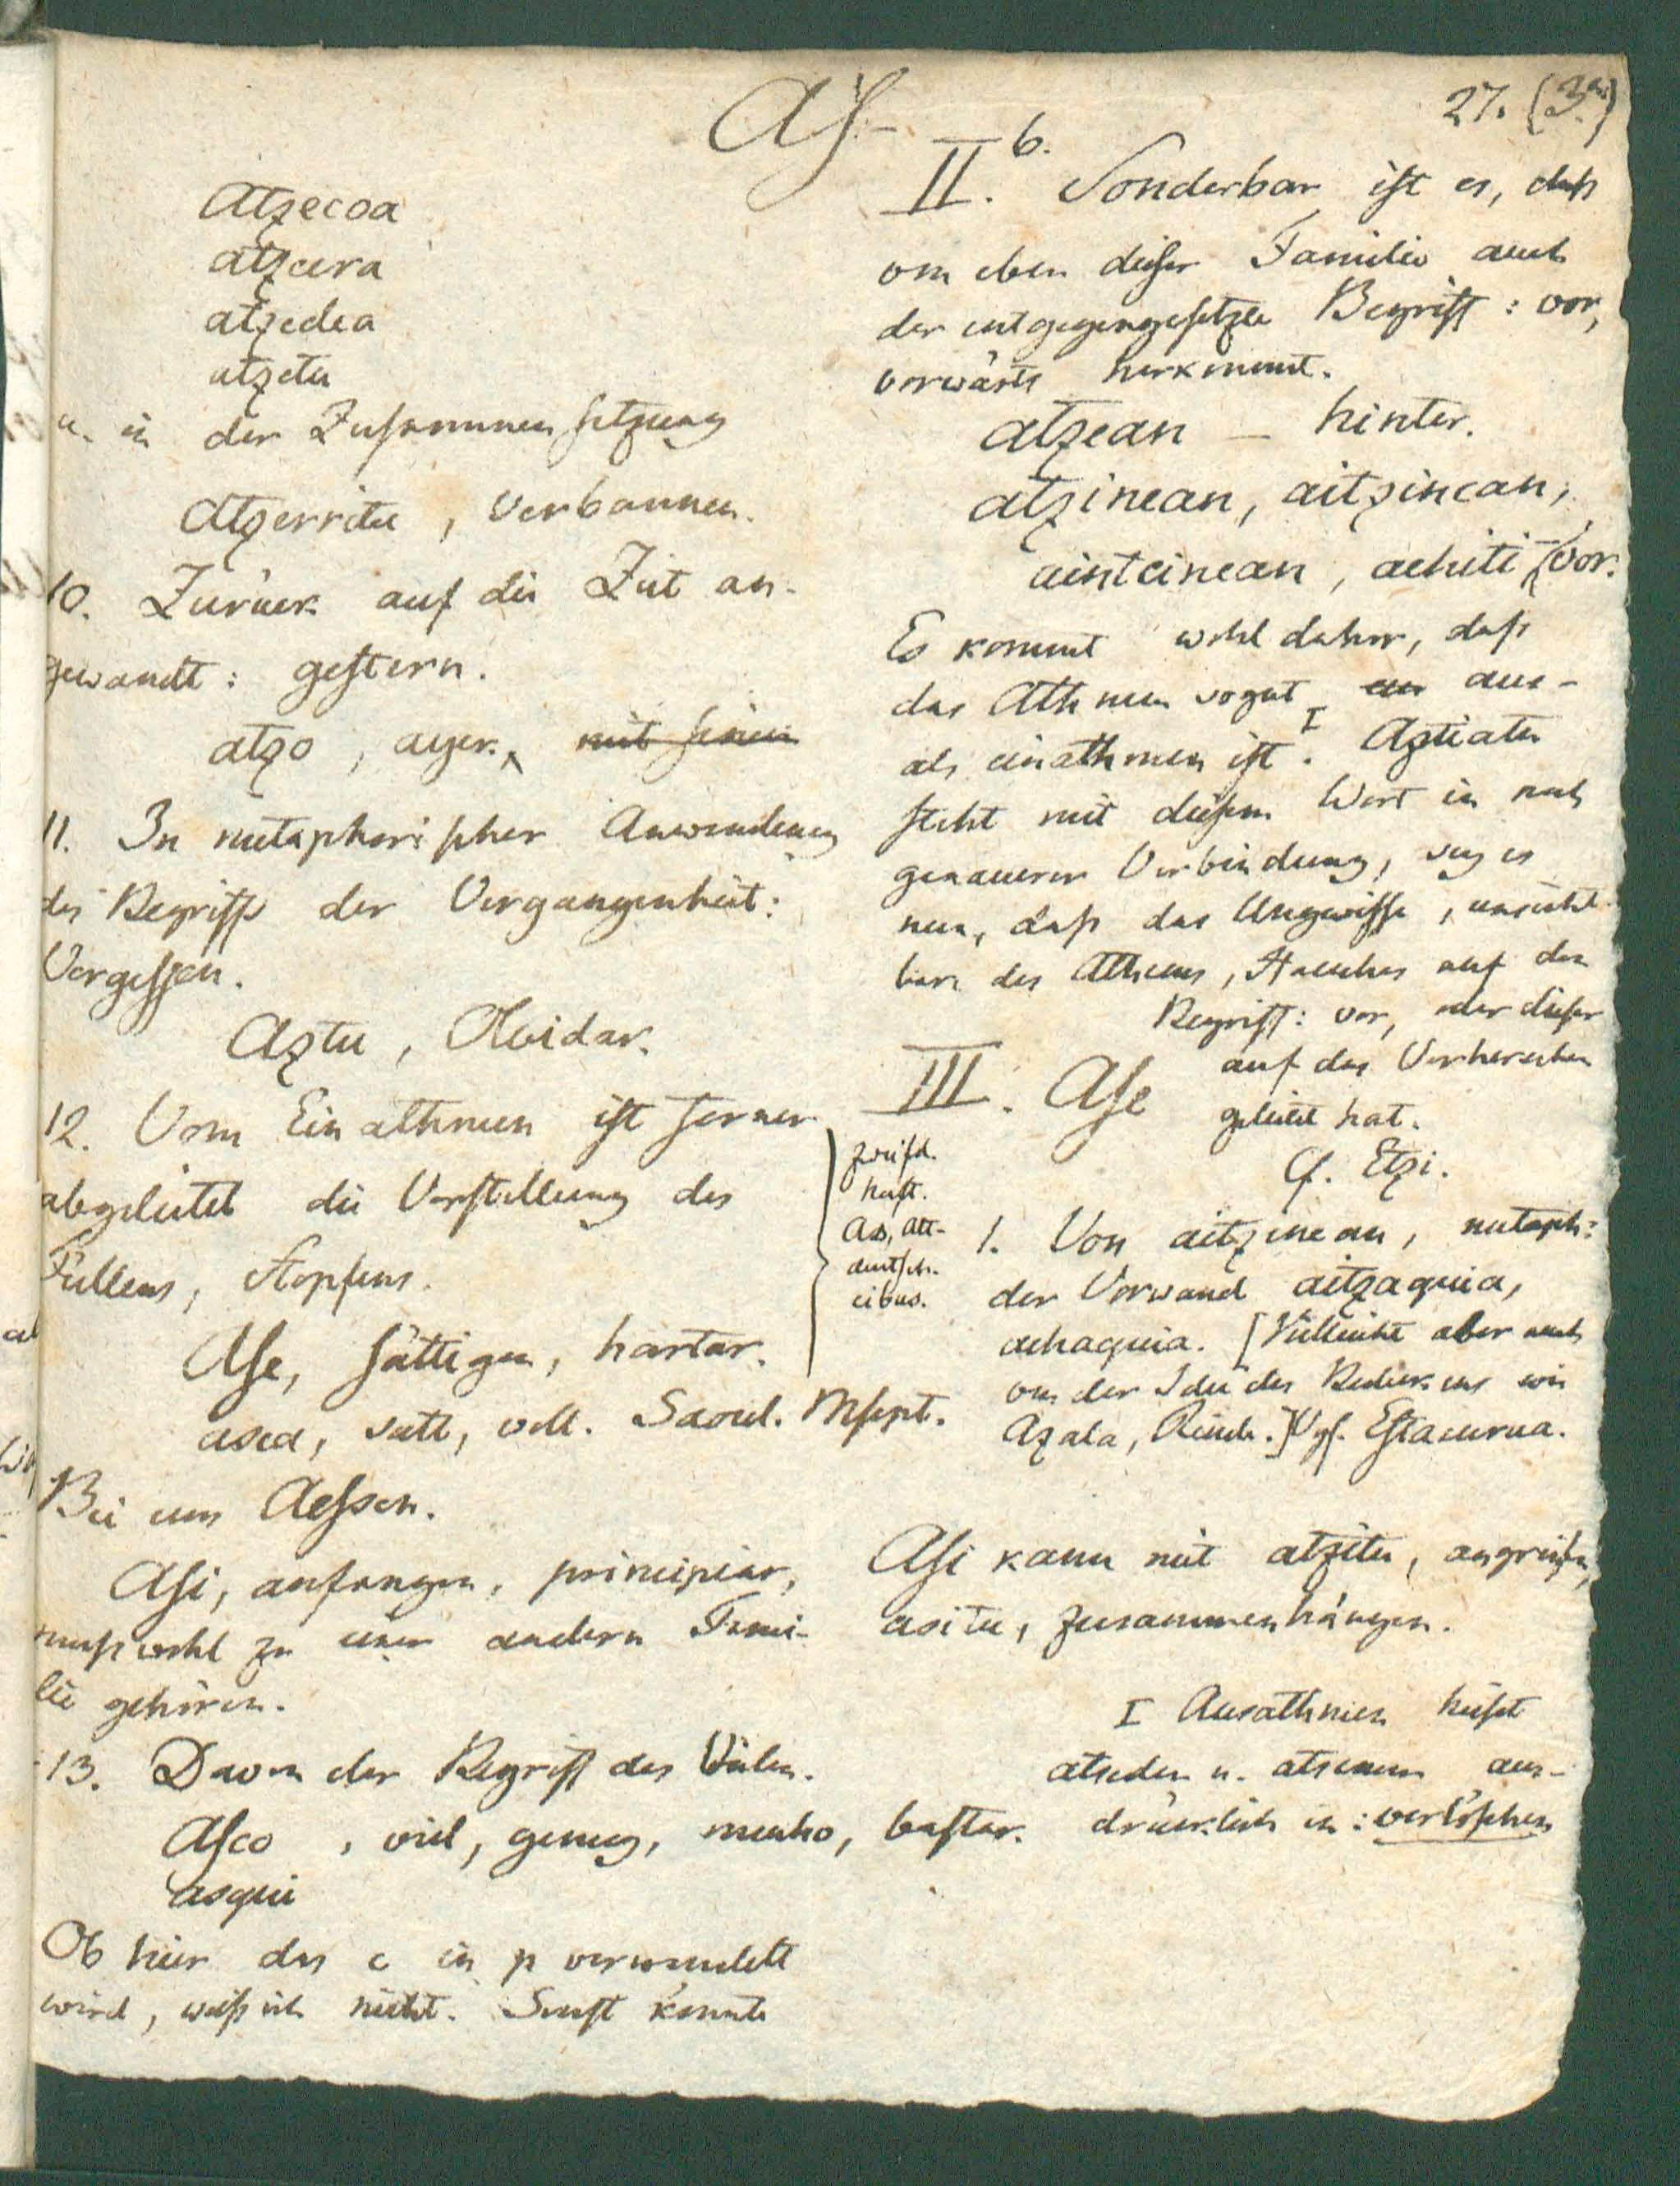 27. (3.)
As-
Atzecoa
atzera
atzedea
atzetu
u. in der Zusammensetzung
Atzerritu, verbannen.
10. Zurück auf die Zeit an-
gewandt: gestern.
atzo, ayer. mit seinen
11. In metaphorischer Anwendung
des Begriffs der Vergangenheit:
Vergessen.
Aztu, Olvidar.
12. Vom Einathmen ist ferner
abgeleitet die Vorstellung des
Füllens, Stopfens.
Ase, sättigen, hartar.
asea, satt, voll. Saoul. Mscpt.
zweifel-
haft.
As, alt-
deutsch.
cibus.
Bei uns Aessen.
Asi, anfangen, principiar,
muss wohl zu einer andern Fami-
lie gehören.
13. Davon der Begriff des Vielen.
Asco, viel, genug, mucho, bastar.
asqui
Ob hier das c in p verwandelt
wird, weiss ich nicht. Sonst könnte
II. b. Sonderbar ist es, dass
von eben dieser Familie auch
der entgegengesetzte Begriff: vor,
vorwärts herkommt.
atzean – hinter.
atzinean, aitzinean,
aintcinean, achiti – vor.
Es kommt wohl daher, dass
das Athmen sogut ein aus-
als einathmen ist. I Aztiatu
steht mit diesem Wort in noch
genauerer Verbindung, sey es
nun, dass das Ungewisse, unsicht-
bare des Athems, Hauches auf den
Begriff: vor, oder dieser
auf das Vorhersehen
geleitet hat.
III. Ase
Cf. Etzi.
1. Von aitzinean, metaph:
der Vorwand aitzaquia,
achaquia. [Vielleicht aber auch
von der Idee des Bedeckens wie
Azala, Rinde.] Vgl. Estacurua.
Asi kann mit atzitu, angreifen,
asitu, zusammenhängen.
I Ausathmen heisst
atseden u. atsemam aus-
drücklich in: verlöschen